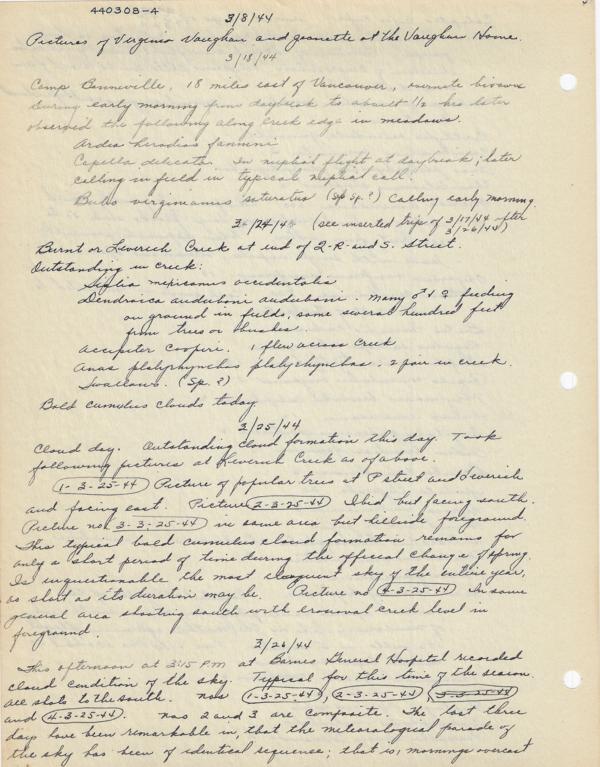 440308-4
3/8/44
Pictures of Virginia Vaughan and Jeanette at the Vaughan Home.
3/18/44
Camp Bonneville, 18 miles east of Vancouver, overnite bivouac
During early morning from daybreak to about 1/2 hrs later
observed the following along Creek edge in meadows.
Ardea herodias fannini
Capella delicata. In nuptial flight at daybreak; later
calling in field in typical nuptial call.
Bubo virginianus saturatus (Sub Sp.?) Calling early morning.
3/24/44 (see inserted trip of 3/17/44 after
3/26/44)
Burnt or Leverich Creek at end of 2-R- and S. Street.
Outstanding in creek:
Sialia mexicanus occidentalis
Dendroica auduboni auduboni. many ♂ & ♀ feeding
on ground in fields, some several hundred feet
from trees or bushes.
Accipiter Cooperi. 1 flew across Creek
Anas platyrhynchos platyrhynchos. 2 pair in creek.
Swallows. (Sp.?)
Bold cumulus clouds today
3/25/44
Cloud day. Outstanding cloud formation this day. Took
following pictures at Leverich Creek as of above.
1-3-25-44 Picture of popular trees at P street and Leverich
and facing east. Picture 2-3-25-44 Ibid but facing south.
Picture no. 3-3-25-44 in same area but hillside foreground.
This typical bold cumulus cloud formation remains for
only a short period of time during the official change of spring.
Is unquestionable the most eloquent sky of the entire year,
as short as its duration may be. Picture no 4-3-25-44 In same
general area shooting south with erosional creek level in
foreground.
3/26/44
This afternoon at 3:15 P.M at Barnes General Hospital recorded
cloud condition of the sky. Typical for this time of the season.
All shots to the south. nos 1-3-25-44, 2-3-25-44, 3-3-25-44
and 4-3-25-44. nos 2 and 3 are composite. The last three
days have been remarkable in, that the meteorological parade of
the sky has been of identical sequence; that is, mornings overcast